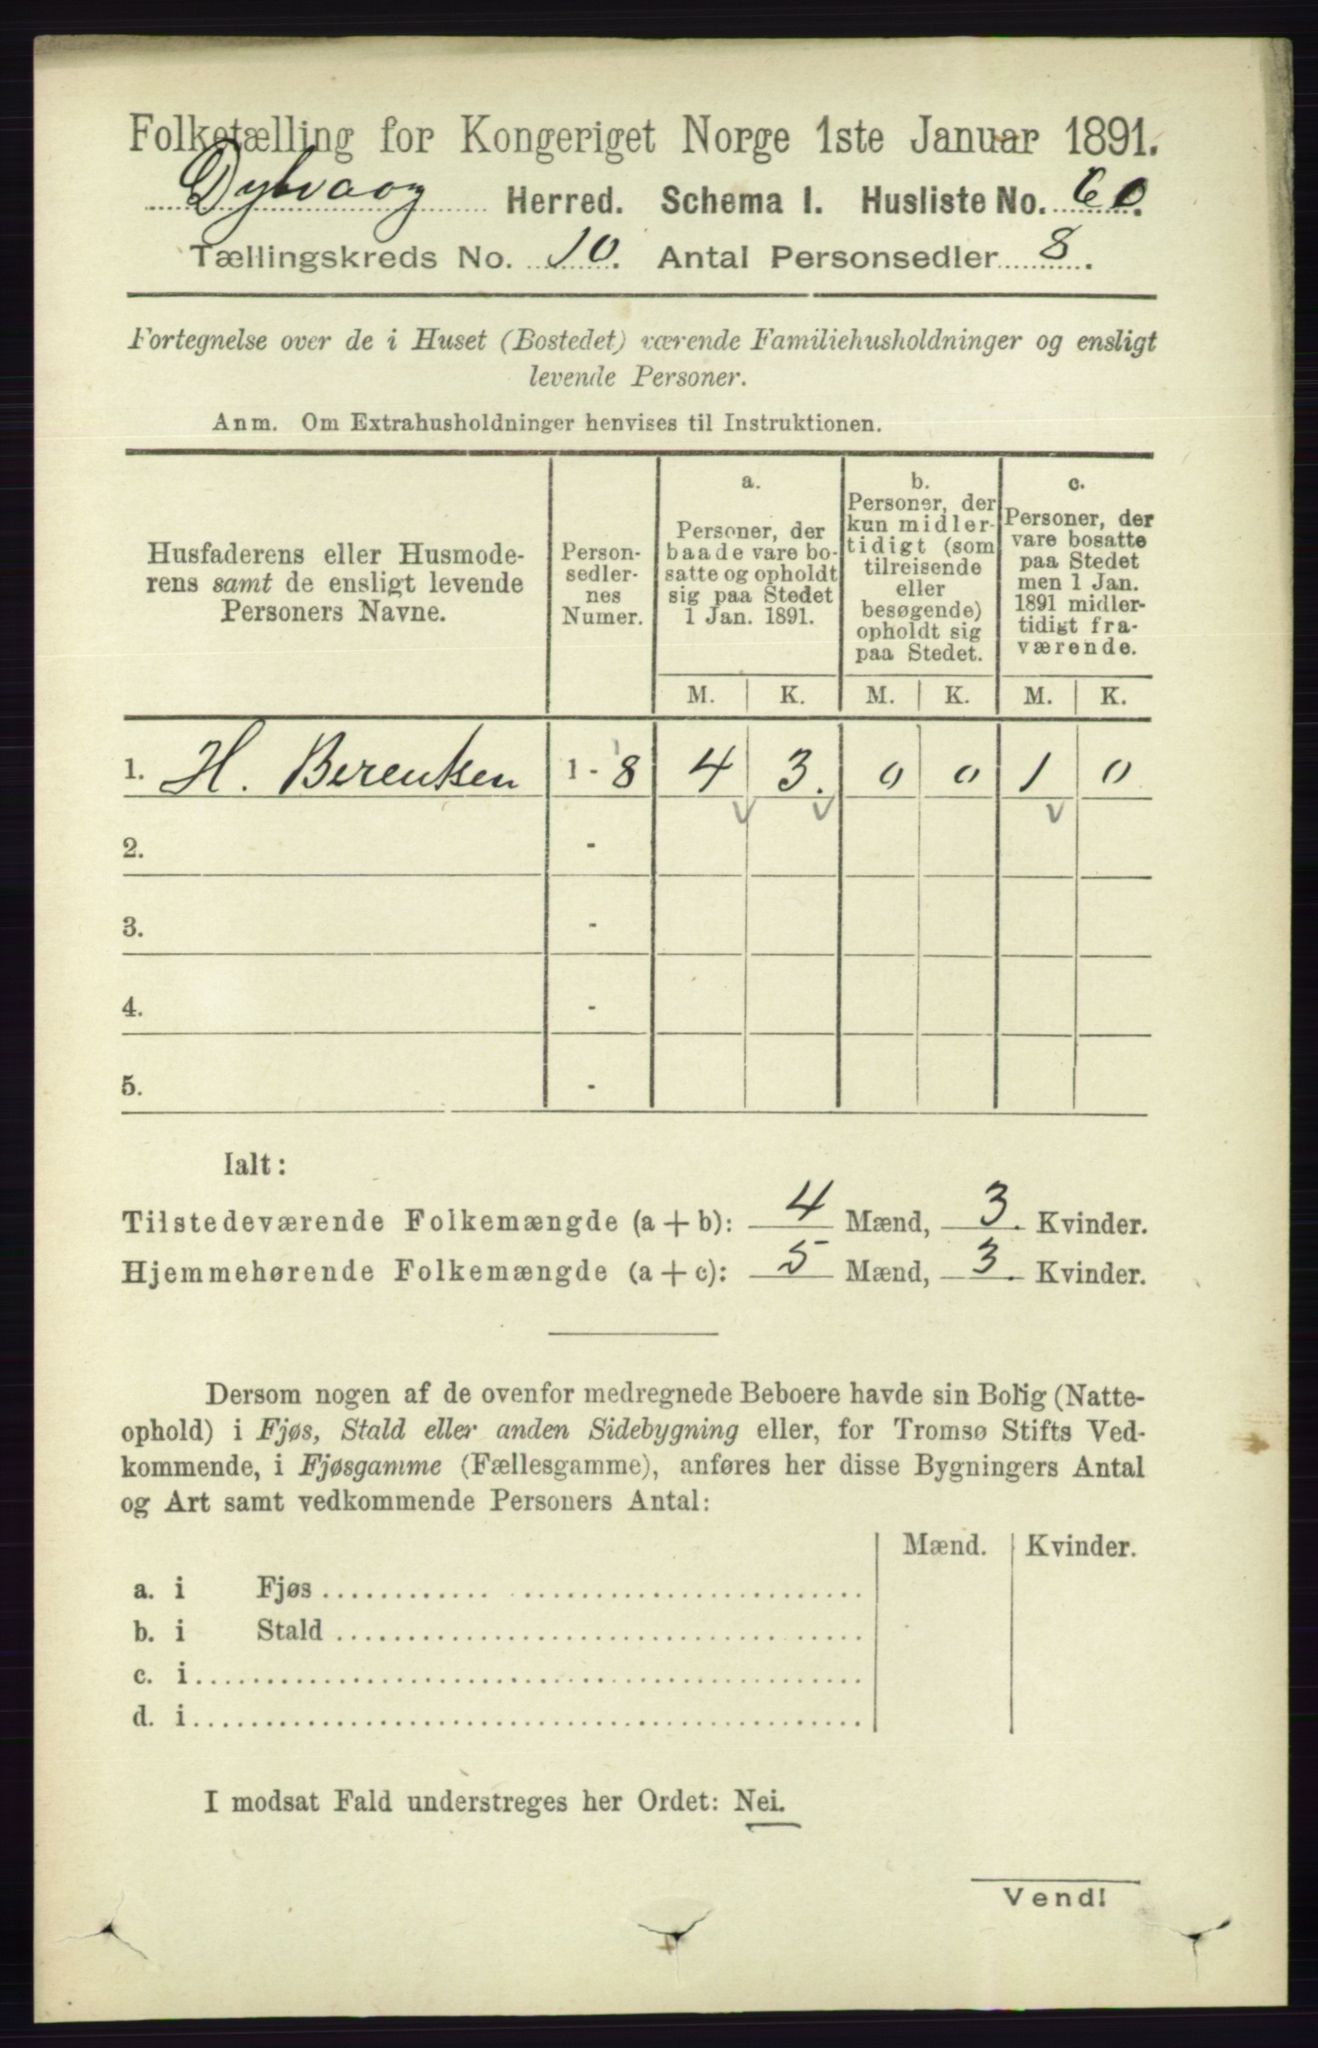 Folketælling for Kongeriget Norge 1ste Januar 1891.
Dybvaag Herred. Schema I. Husliste No. 60.
Tællingskreds No. 10. Antal Personsedler 8.
Fortegnelse over de i Huset (Bostedet) værende Familiehusholdninger og ensligt
levende Personer.
Anm. Om Extrahusholdninger henvises til Instruktionen.
Husfaderens eller Husmode-
rens samt de ensligt levende
Personers Navne.
Person-
sedler-
nes
Numer.
a.
Personer, der
baade vare bo-
satte og opholdt
sig paa Stedet
1 Jan. 1891.
b.
Personer, der
kun midler-
tidigt (som
tilreisende
eller
besøgende)
opholdt sig
paa Stedet.
c.
Personer, der
vare bosatte
paa Stedet
men 1 Jan.
1891 midler-
tidigt fra-
værende.
M. K. M. K. M. K.
1. H. Berentsen 1 - 8 4 3. 0 0 1 0
2. -
3. -
4. -
5. -
Ialt:
Tilstedeværende Folkemængde (a + b): 4 Mænd, 3. Kvinder.
Hjemmehørende Folkemængde (a + c): 5 Mænd, 3. Kvinder.
Dersom nogen af de ovenfor medregnede Beboere havde sin Bolig (Natte-
ophold) i Fjøs, Stald eller anden Sidebygning eller, for Tromsø Stifts Ved-
kommende, i Fjøsgamme (Fællesgamme), anføres her disse Bygningers Antal
og Art samt vedkommende Personers Antal:
Mænd. Kvinder.
a. i Fjøs
b. i Stald
c. i
d. i
I modsat Fald understreges her Ordet: Nei.
Vend!